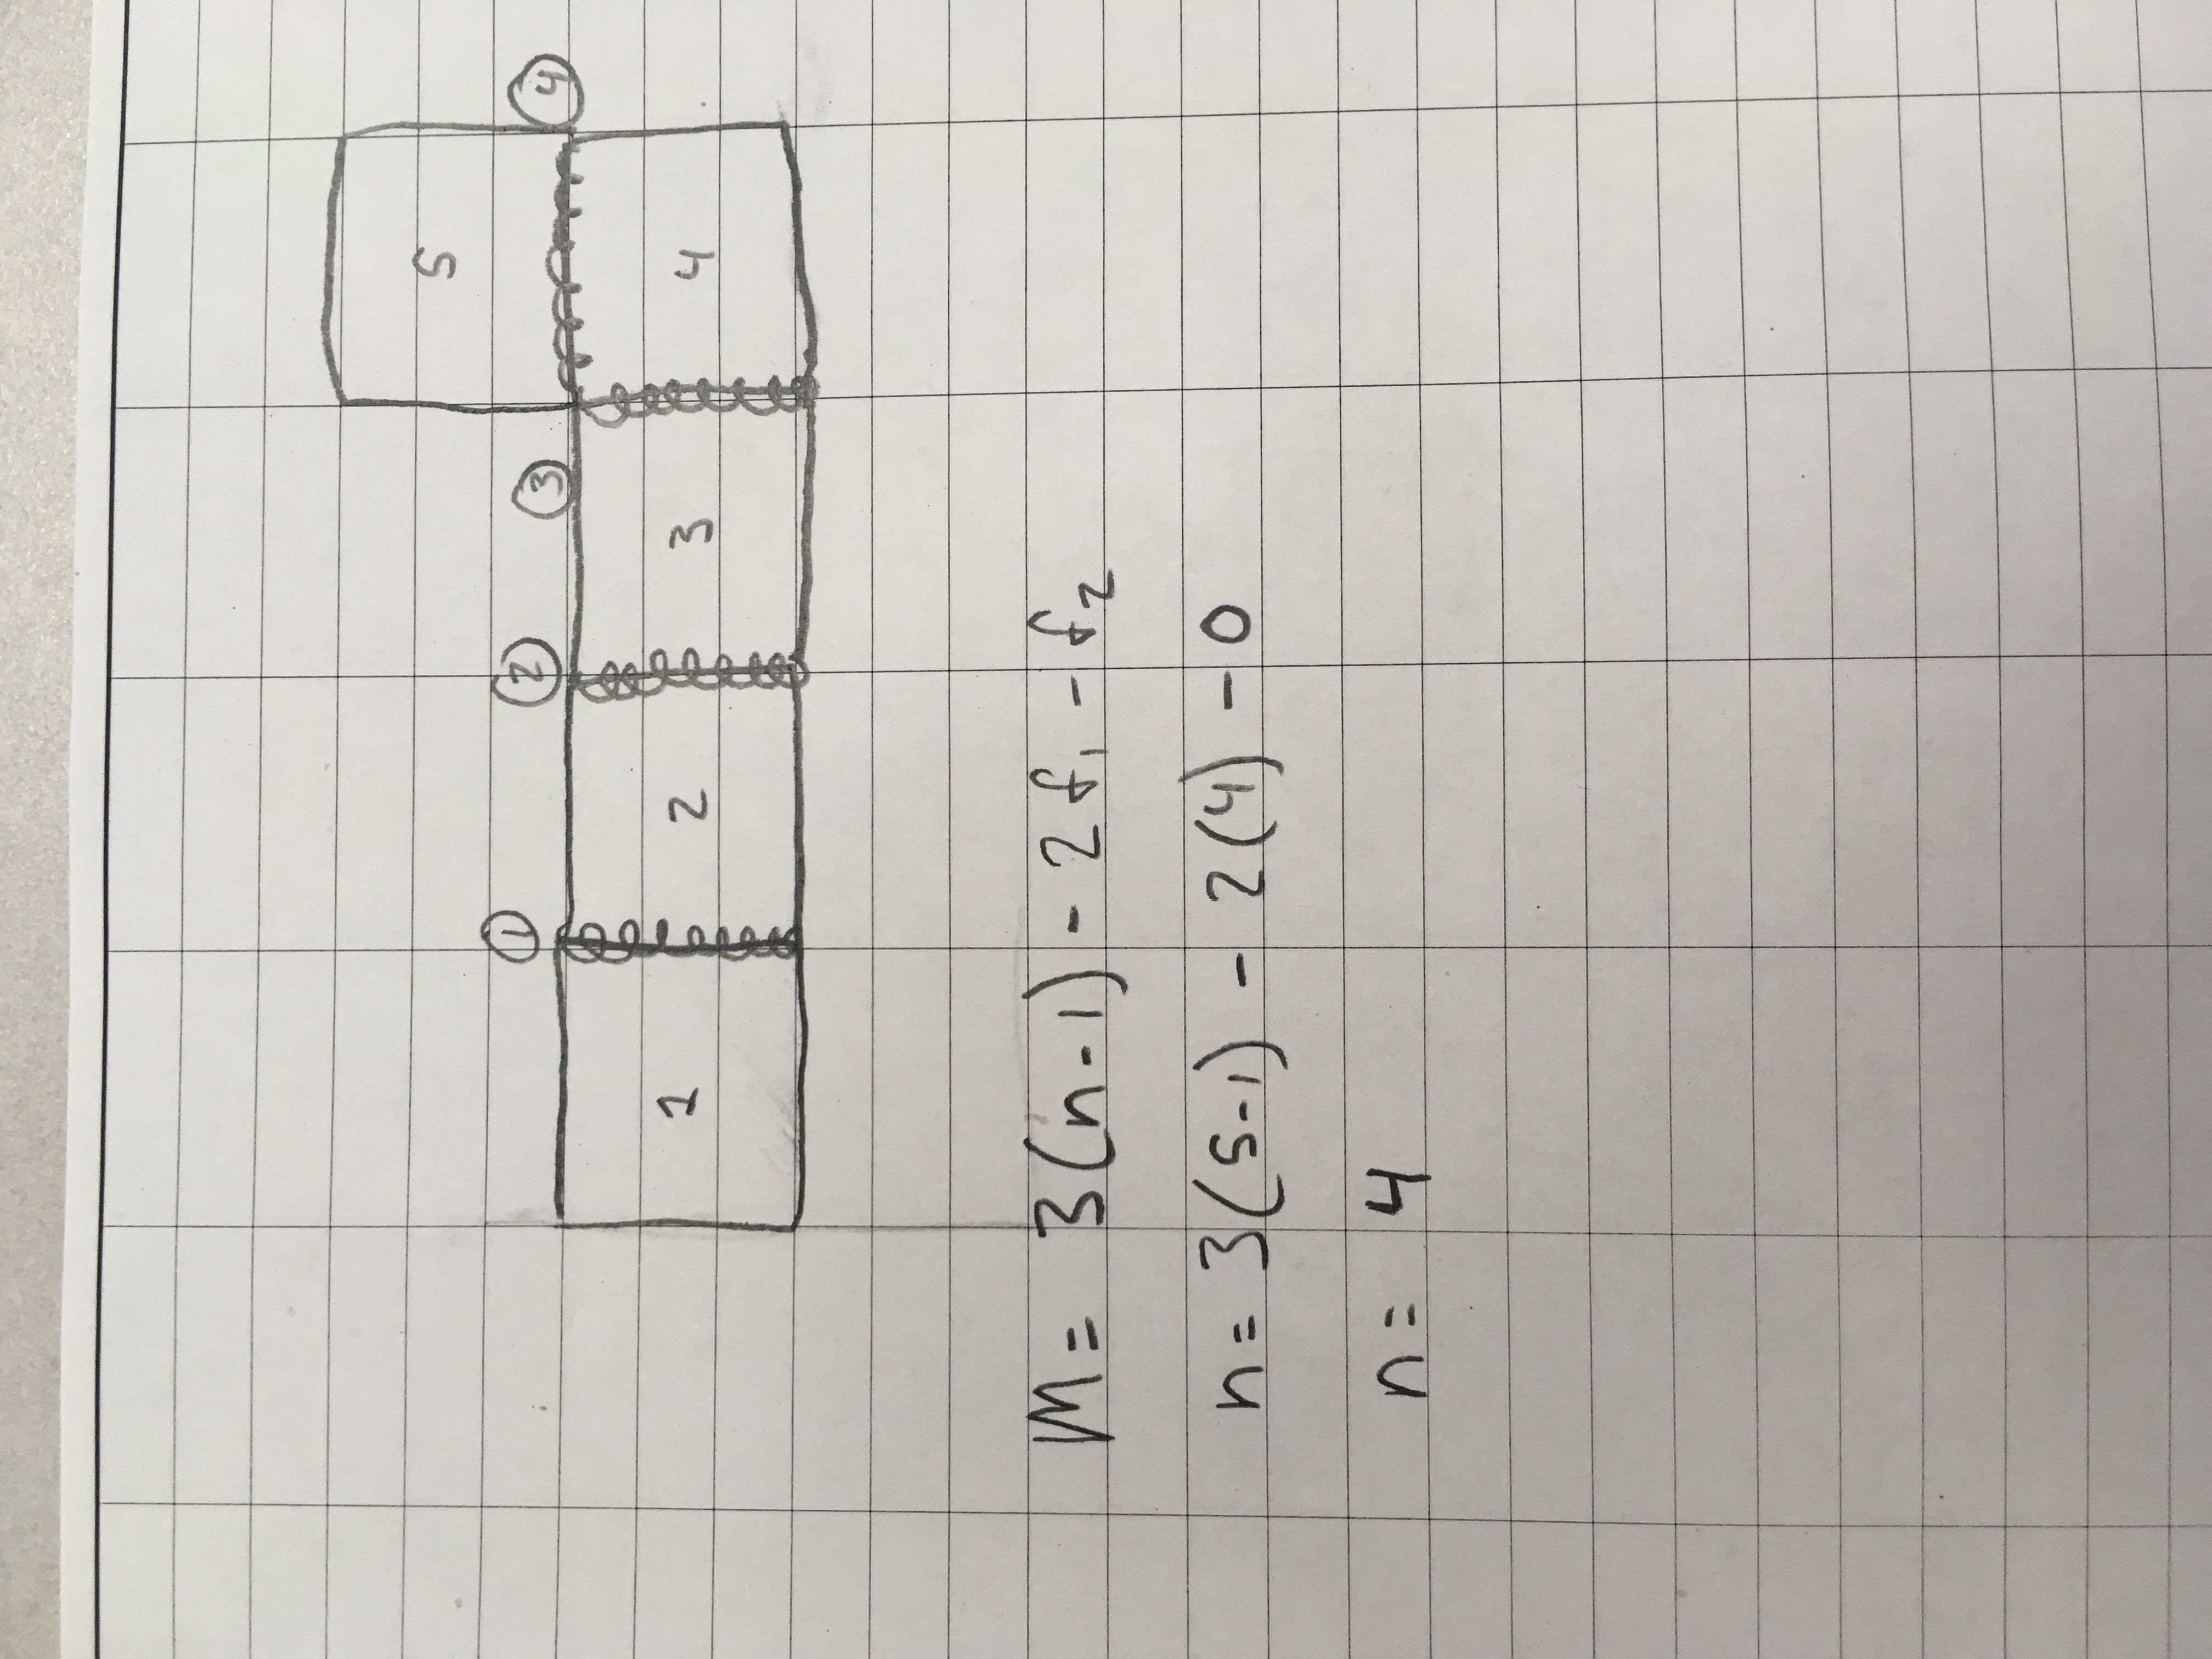 5
① ② ③ ④
1 2 3 4
M = 3(n-1) - 2f₁ - f₂
n = 3(5-1) - 2(4) - 0
n = 4